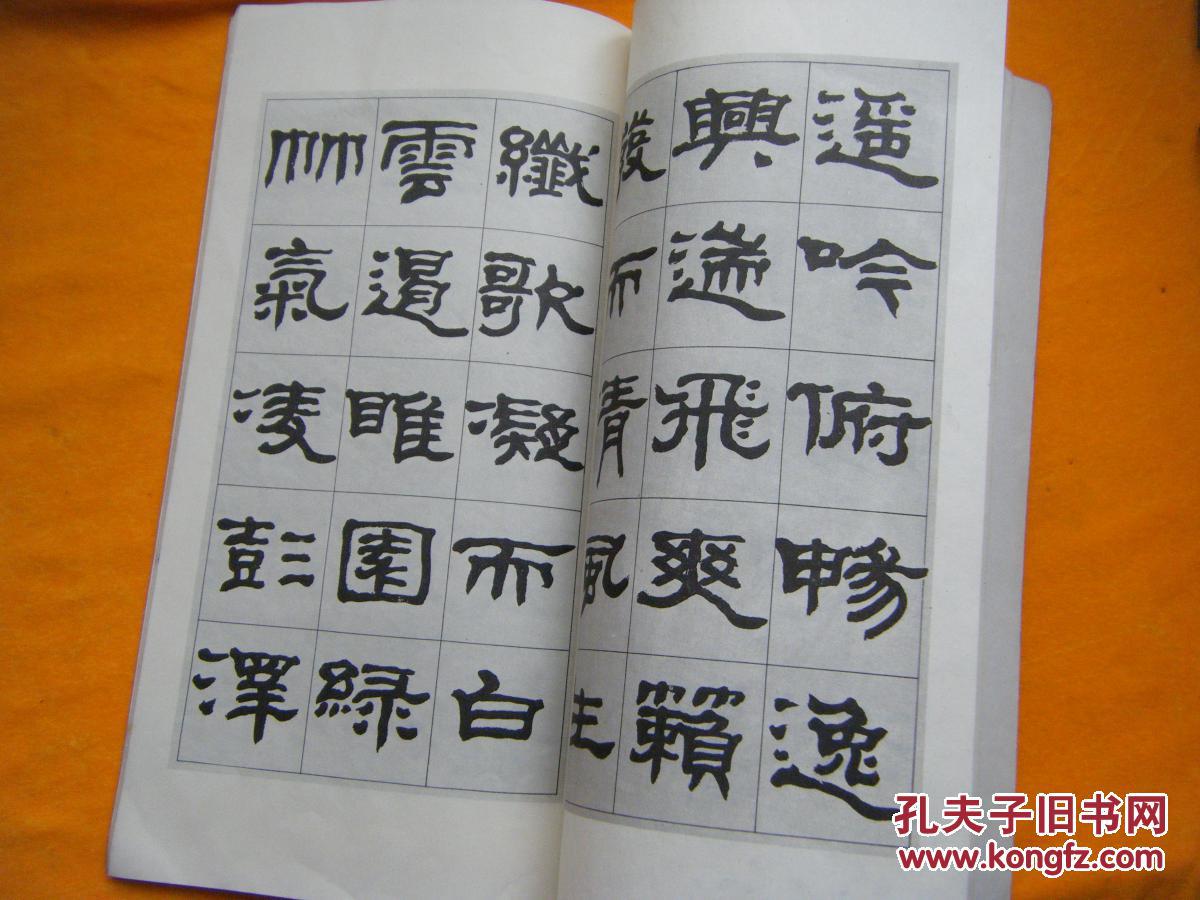 遥吟俯暢逸
興遄飛爽籟
發而清風生
纖歌凝而白
雲遏睢園緑
竹氣凌彭澤
孔夫子旧书网
www.kongfz.com